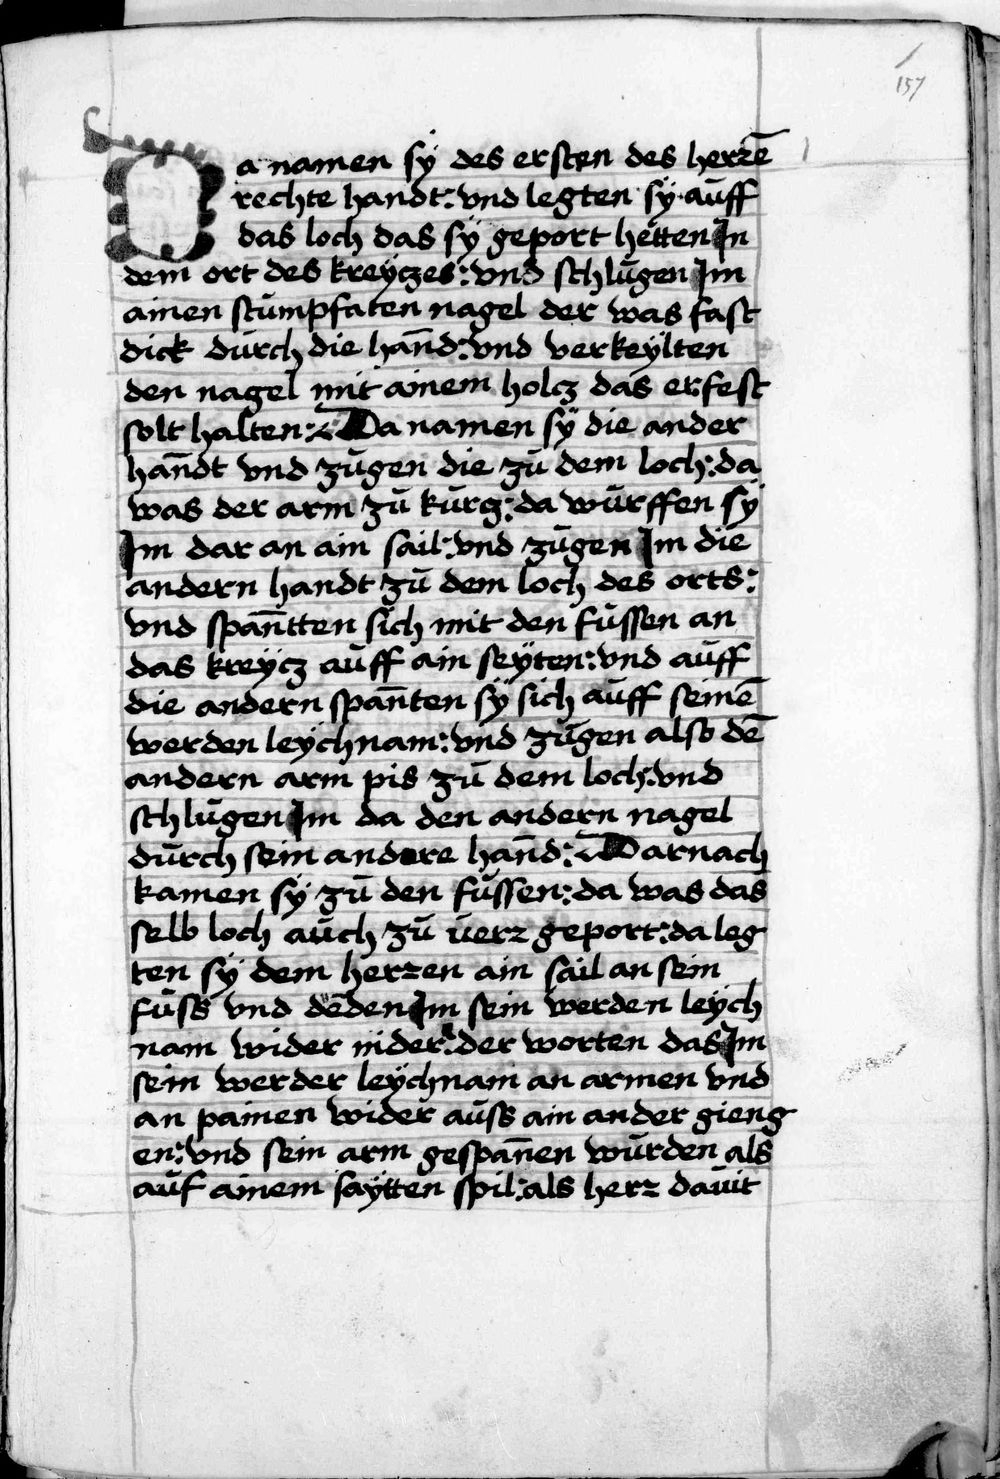 157
Da namen sÿ des ersten des herzē
rechte handt: vnd legten sÿ auff
das loch das sÿ geport hetten In
dem ort des kreÿczes: vnd schlůgen Im
ainen stumpfaten nagel der was fast
dick durch die hañd: vnd verkeÿlten
den nagel mit ainem holcz das er fest
solt halten: Da namen sÿ die ander
hañdt vnd zugen die zů dem loch: da
was der arm zů kurcz: da wurffen sÿ
Im dar an ain sail: vnd zugen Im die
andern handt zů dem loch des orts:
vnd spañtten sich mit den füssen an
das kreÿcz auff ain seÿten: vnd auff
die andern spañten sÿ sich auff seinē
werden leÿchnam: vnd zugen also dē
andern arm pis zů dem loch: vnd
schlůgen Im da den andern nagel
durch sein andere hañd: Darnach
kamen sÿ zů den füssen: da was das
selb loch auch zů verz geport: da leg
ten sÿ dem herzen ain sail an sein
füss vnd dēden Im sein werden leÿch
nam wider nider: der worten das Im
sein werder leÿchnam an armen vnd
an painen wider auss ain ander gieng
en: vnd sein arm gespañen wurden als
auf ainem saÿtten spil: als herz dauit